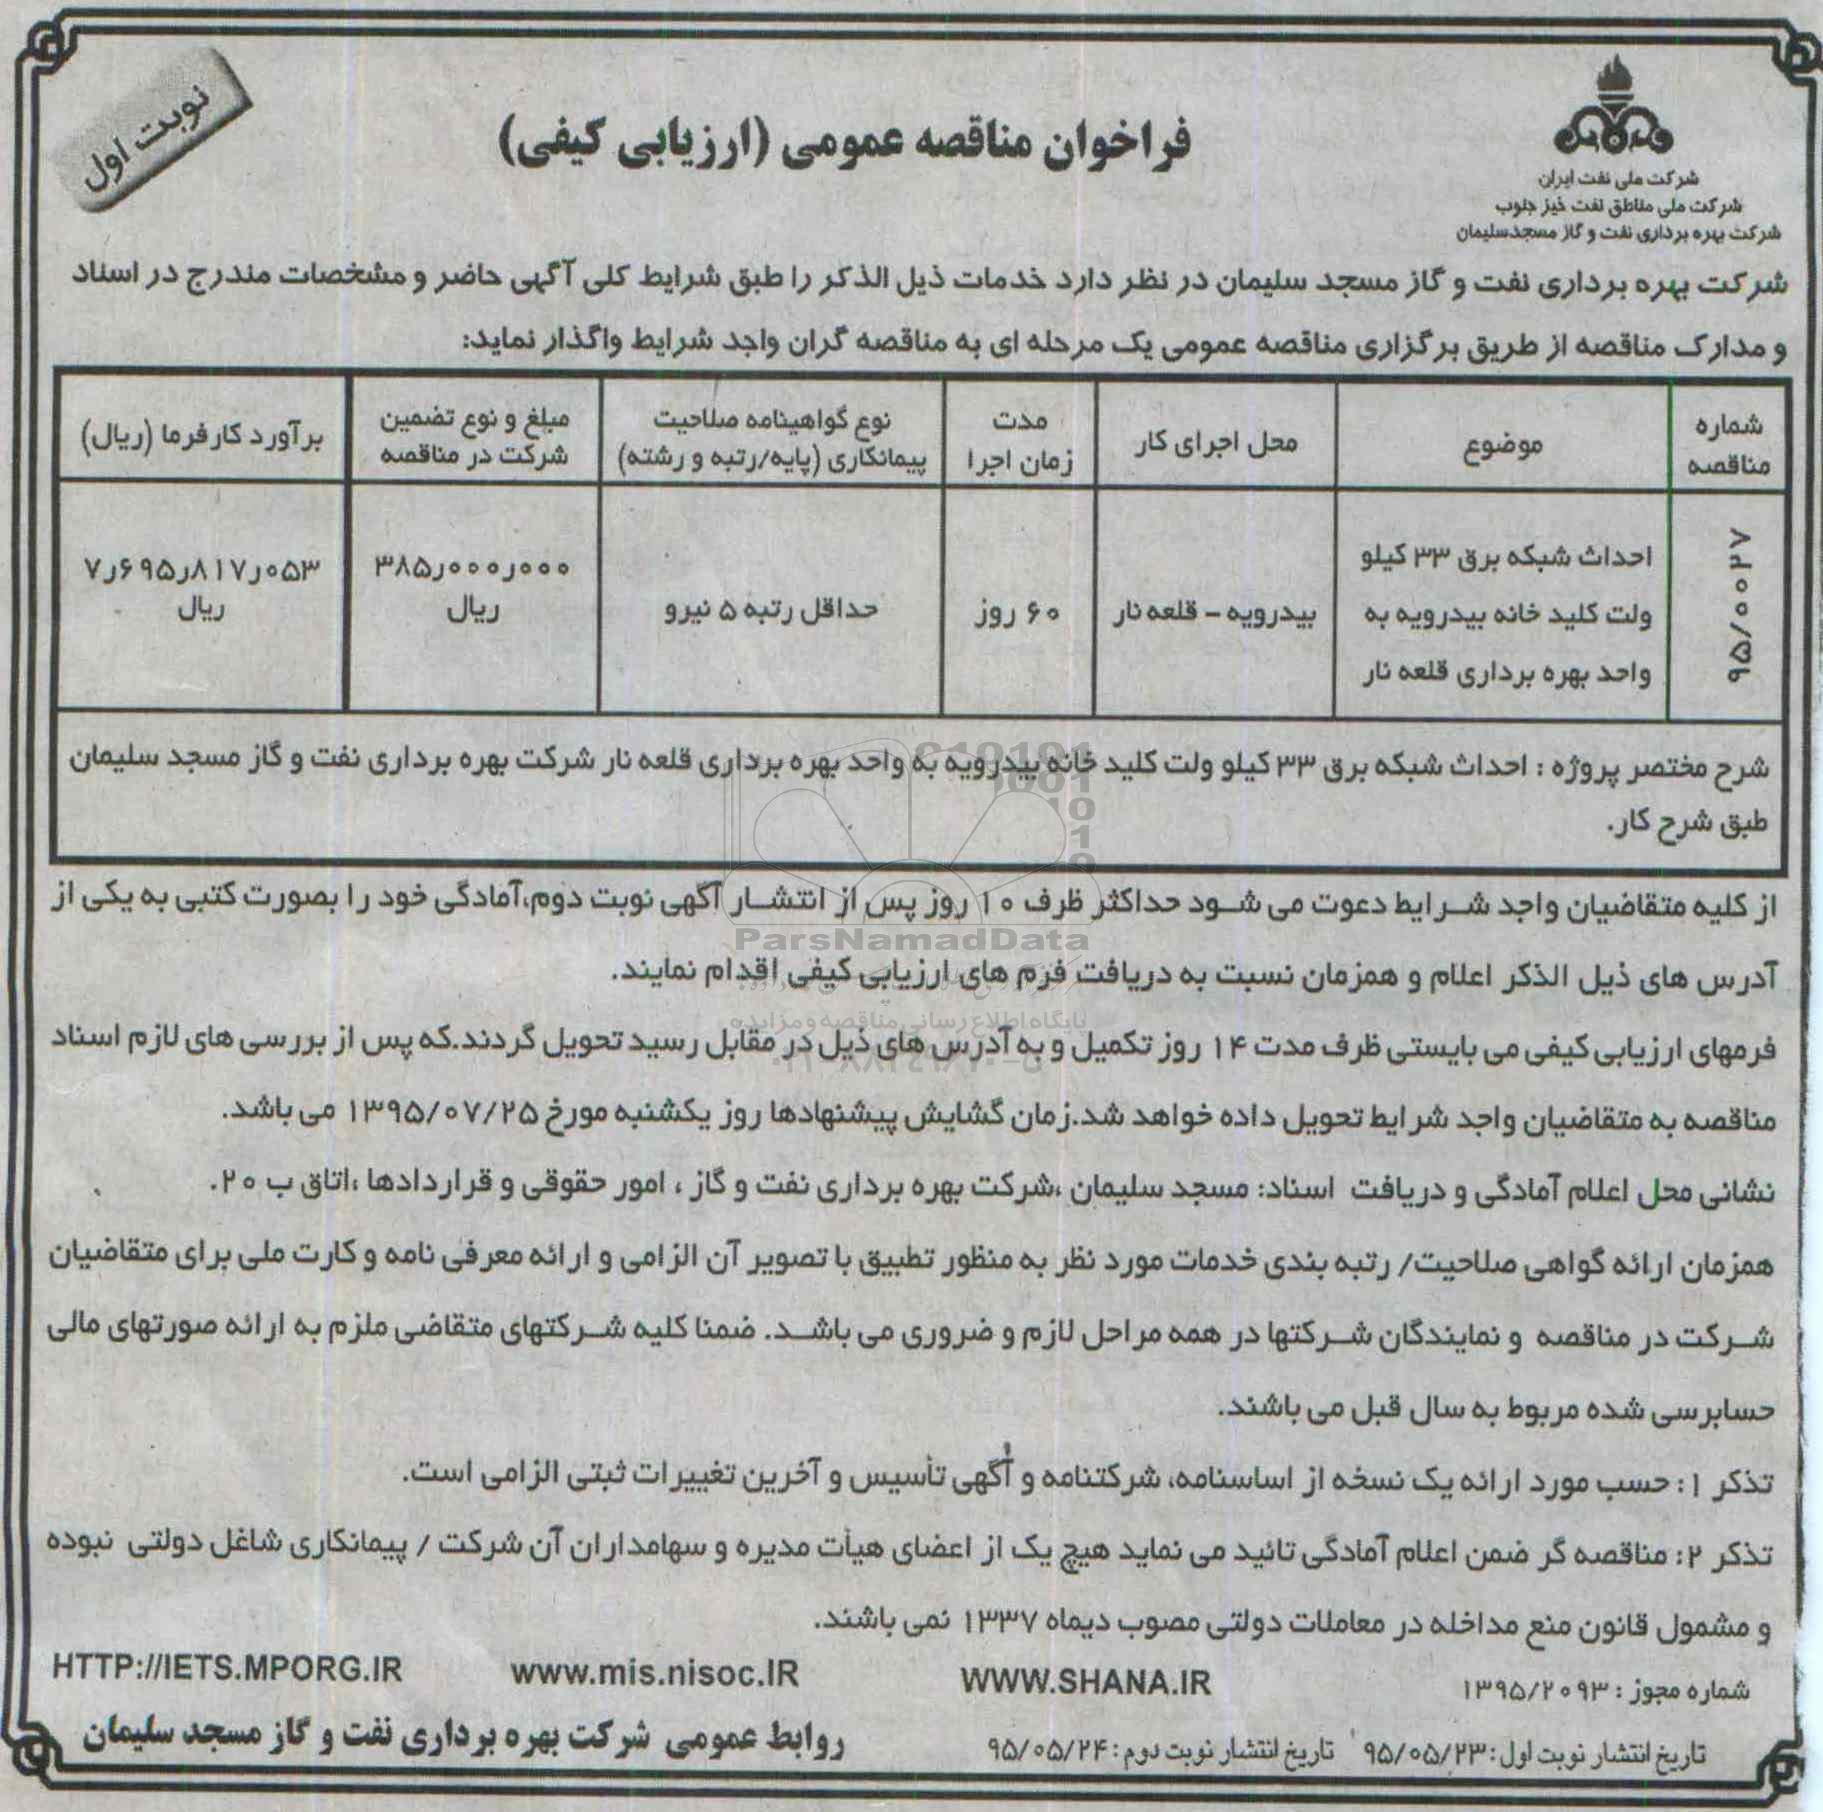 نوبت اول
فراخوان مناقصه عمومی (ارزیابی کیفی)
شرکت ملی نفت ایران
شرکت ملی مناطق نفت خیز جنوب
شرکت بهره برداری نفت و گاز مسجدسلیمان
شرکت بهره برداری نفت و گاز مسجد سلیمان در نظر دارد خدمات ذیل الذکر را طبق شرایط کلی آگهی حاضر و مشخصات مندرج در اسناد
و مدارک مناقصه از طریق برگزاری مناقصه عمومی یک مرحله ای به مناقصه گران واجد شرایط واگذار نماید:
شماره مناقصه
موضوع
محل اجرای کار
مدت زمان اجرا
نوع گواهینامه صلاحیت
پیمانکاری (پایه/رتبه و رشته)
مبلغ و نوع تضمین
شرکت در مناقصه
برآورد کارفرما (ریال)
۹۵/۰۰۲۷
احداث شبکه برق ۳۳ کیلو
ولت کلید خانه بیدرویه به
واحد بهره برداری قلعه نار
بیدرویه – قلعه نار
۶۰ روز
حداقل رتبه ۵ نیرو
۳۸۵ر۰۰۰ر۰۰۰
ریال
۷ر۶۹۵ر۸۱۷ر۰۵۳
ریال
شرح مختصر پروژه : احداث شبکه برق ۳۳ کیلو ولت کلید خانه بیدرویه به واحد بهره برداری قلعه نار شرکت بهره برداری نفت و گاز مسجد سلیمان
طبق شرح کار.
از کلیه متقاضیان واجد شرایط دعوت می شود حداکثر ظرف ۱۰ روز پس از انتشار آگهی نوبت دوم،آمادگی خود را بصورت کتبی به یکی از
ParsNamadData
آدرس های ذیل الذکر اعلام و همزمان نسبت به دریافت فرم های ارزیابی کیفی اقدام نمایند.
پایگاه اطلاع رسانی مناقصه و مزایده
فرمهای ارزیابی کیفی می بایستی ظرف مدت ۱۴ روز تکمیل و به آدرس های ذیل در مقابل رسید تحویل گردند.که پس از بررسی های لازم اسناد
مناقصه به متقاضیان واجد شرایط تحویل داده خواهد شد.زمان گشایش پیشنهادها روز یکشنبه مورخ ۱۳۹۵/۰۷/۲۵ می باشد.
نشانی محل اعلام آمادگی و دریافت اسناد: مسجد سلیمان ،شرکت بهره برداری نفت و گاز ، امور حقوقی و قراردادها ،اتاق ب ۲۰.
همزمان ارائه گواهی صلاحیت/ رتبه بندی خدمات مورد نظر به منظور تطبیق با تصویر آن الزامی و ارائه معرفی نامه و کارت ملی برای متقاضیان
شرکت در مناقصه و نمایندگان شرکتها در همه مراحل لازم و ضروری می باشد. ضمنا کلیه شرکتهای متقاضی ملزم به ارائه صورتهای مالی
حسابرسی شده مربوط به سال قبل می باشند.
تذکر ۱: حسب مورد ارائه یک نسخه از اساسنامه، شرکتنامه و آگهی تأسیس و آخرین تغییرات ثبتی الزامی است.
تذکر ۲: مناقصه گر ضمن اعلام آمادگی تائید می نماید هیچ یک از اعضای هیأت مدیره و سهامداران آن شرکت / پیمانکاری شاغل دولتی نبوده
و مشمول قانون منع مداخله در معاملات دولتی مصوب دیماه ۱۳۳۷ نمی باشند.
شماره مجوز : ۱۳۹۵/۲۰۹۳
WWW.SHANA.IR
www.mis.nisoc.IR
HTTP://IETS.MPORG.IR
تاریخ انتشار نوبت اول: ۹۵/۰۵/۲۳
تاریخ انتشار نوبت دوم: ۹۵/۰۵/۲۴
روابط عمومی شرکت بهره برداری نفت و گاز مسجد سلیمان